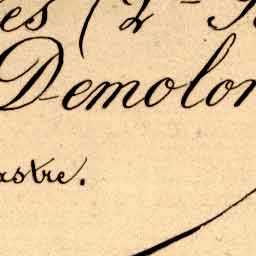 es (2
Demolon
astre.